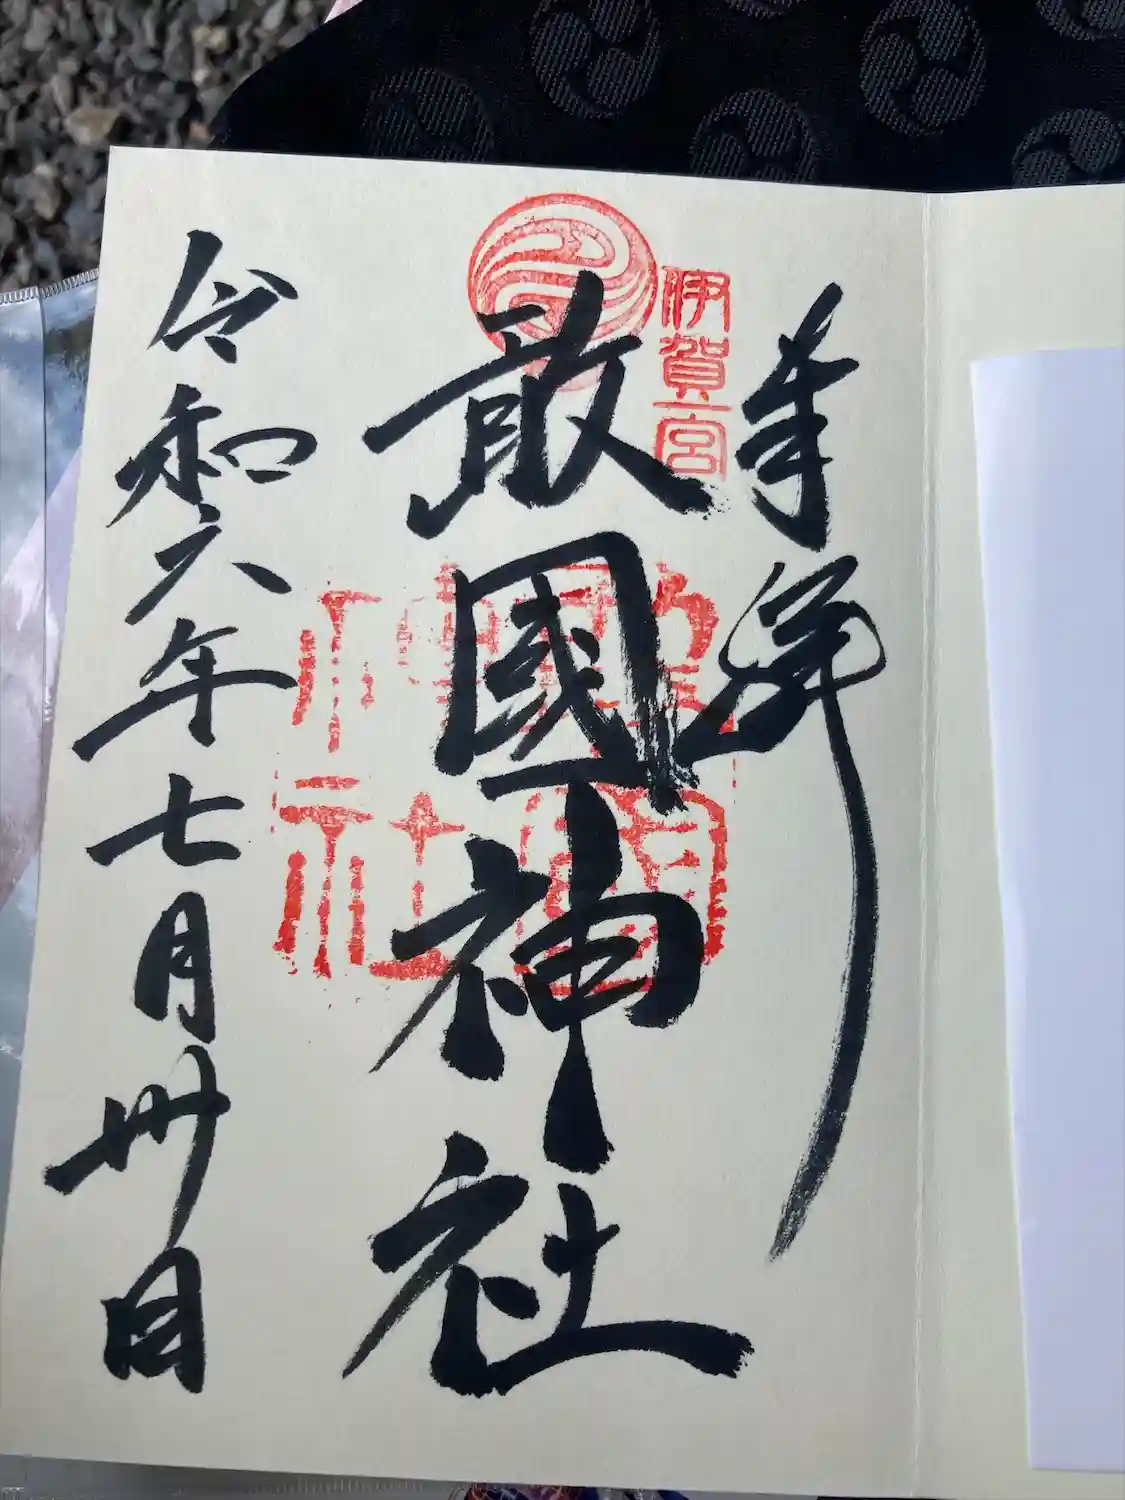 奉拝
伊賀一宮
敢國神社
敢國神社
令和六年七月卅日